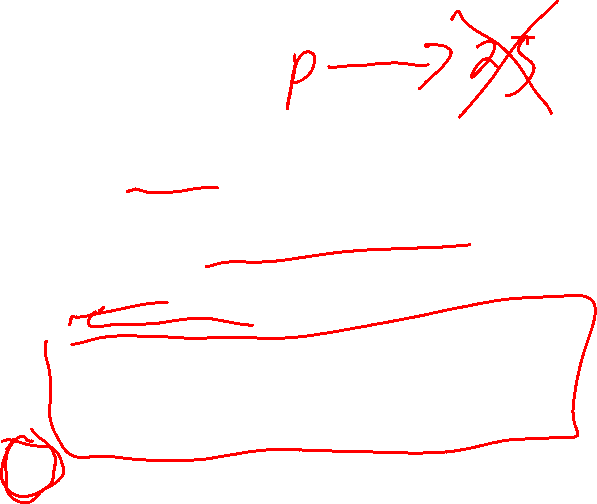 p → 25